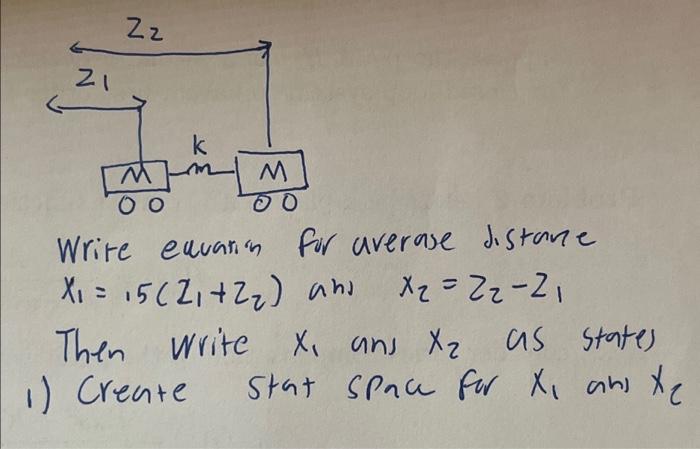 Z2
Z1
k
M M
Write equation for average distance
X1 = .5(Z1+Z2) and X2 = Z2-Z1
Then write X1 and X2 as states
1) Create stat space for X1 and X2